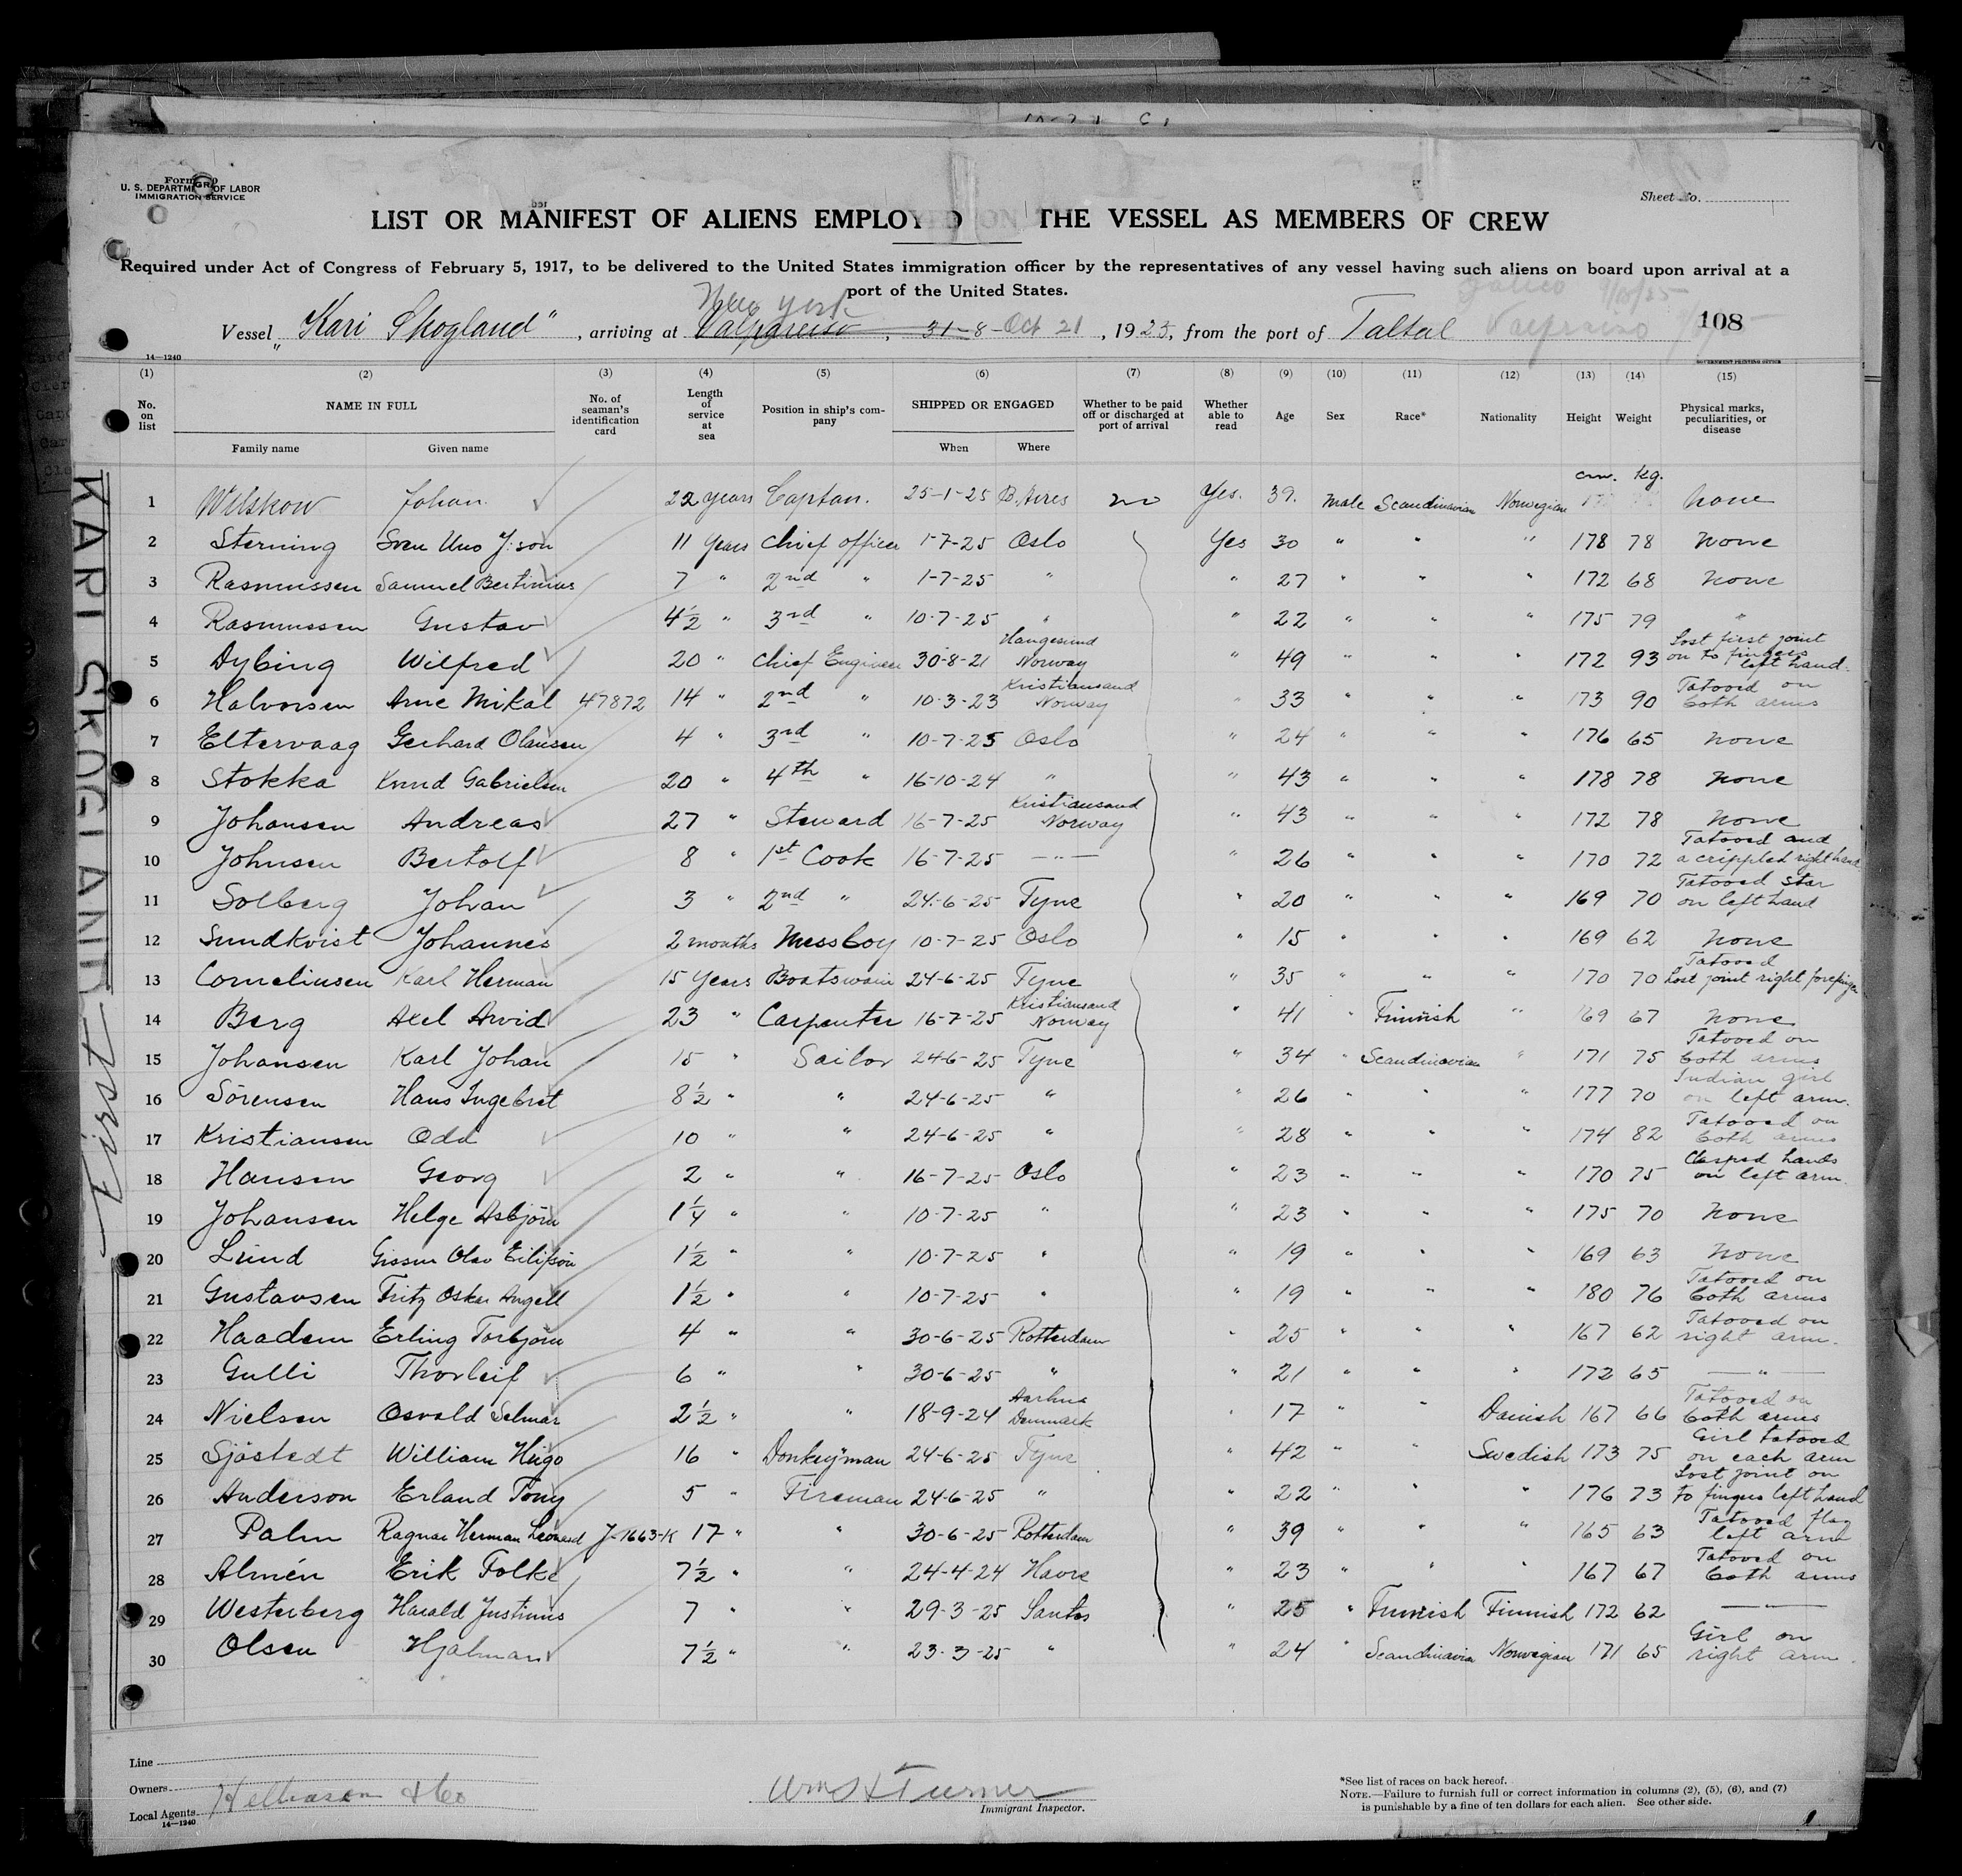 U. S. DEPARTMENT OF LABOR
IMMIGRATION SERVICE
Sheet No.
LIST OR MANIFEST OF ALIENS EMPLOYED ON THE VESSEL AS MEMBERS OF CREW
Required under Act of Congress of February 5, 1917, to be delivered to the United States immigration officer by the representatives of any vessel having such aliens on board upon arrival at a
port of the United States.
New York
Vessel "Kari Skogland", arriving at Valparaiso, 31-8- Oct 21, 1925, from the port of Taltal 108
14—1240
(1) (2) (3) (4) (5) (6) (7) (8) (9) (10) (11) (12) (13) (14) (15)
No. on list NAME IN FULL No. of seaman's identification card Length of service at sea Position in ship's company SHIPPED OR ENGAGED Whether to be paid off or discharged at port of arrival Whether able to read Age Sex Race* Nationality Height Weight Physical marks, peculiarities, or disease
Family name Given name When Where
cm. kg.
1 Wilskow Johan 22 years Captan. 25-1-25 B. Aires no Yes. 39. male Scandinavian Norwegian none
2 Sterning Sven Uno J:son 11 Years Chief officer 1-7-25 Oslo Yes 30 " " " 178 78 none
3 Rasmussen Samuel Bertinius 7 " 2nd " 1-7-25 " " 27 " " " 172 68 none
4 Rasmussen Gustav 4½ " 3rd " 10-7-25 " " 22 " " " 175 79 "
5 Dybing Wilfred 20 " Chief Engineer 30-8-21 Haugesund Norway " 49 " " " 172 93 Lost first joint on to fingers left hand.
6 Halvorsen Arne Mikal 47872 14 " 2nd " 10-3-23 Kristiansand Norway " 33 " " " 173 90 Tatooed on both arms
7 Eltervaag Gerhard Olausen 4 " 3rd " 10-7-25 Oslo " 24 " " " 176 65 none
8 Stokka Knud Gabrielsen 20 " 4th " 16-10-24 " " 43 " " " 178 78 none
9 Johansen Andreas 27 " Steward 16-7-25 Kristiansand Norway " 43 " " " 172 78 none
10 Johnsen Bertolf 8 " 1st Cook 16-7-25 — " — " 26 " " " 170 72 Tatooed and a crippled right hand
11 Solberg Johan 3 " 2nd " 24-6-25 Tyne " 20 " " " 169 70 Tatooed star on left hand
12 Sundkvist Johannes 2 months Messboy 10-7-25 Oslo " 15 " " " 169 62 none
13 Corneliusen Karl Herman 15 Years Boatswain 24-6-25 Tyne " 35 " " " 170 70 Tatooed Lost joint right forefinger
14 Berg Axel Arvid 23 " Carpenter 16-7-25 Kristiansand Norway " 41 " Finnish " 169 67 none
15 Johansen Karl Johan 15 " Sailor 24-6-25 Tyne " 34 " Scandinavian " 171 75 Tatooed on both arms
16 Sörensen Hans Ingebret 8½ " " 24-6-25 " " 26 " " " 177 70 Indian girl on left arm.
17 Kristiansen Odd 10 " " 24-6-25 " " 28 " " " 174 82 Tatooed on both arms
18 Hansen Georg 2 " " 16-7-25 Oslo " 23 " " " 170 75 Clasped hands on left arm.
19 Johansen Helge Asbjörn 1¼ " " 10-7-25 " " 23 " " " 175 70 none
20 Lund Olav 1½ " " 10-7-25 " " 19 " " " 169 63 none
21 Gustavsen Fritz Oskar Angell 1½ " " 10-7-25 " " 19 " " " 180 76 Tatooed on both arms
22 Haadem Erling Torbjörn 4 " " 30-6-25 Rotterdam " 25 " " " 167 62 Tatooed on right arm.
23 Gulli Thorleif 6 " " 30-6-25 " " 21 " " " 172 65 — " —
24 Nielsen Osvald Selmar 2½ " " 18-9-24 Aarhus Denmark " 17 " " Danish 167 66 Tatooed on both arms
25 Sjöstedt William Hugo 16 " Donkeyman 24-6-25 Tyne " 42 " " Swedish 173 75 Girl tatooed on each arm
26 Anderson Erland Tony 5 " Fireman 24-6-25 " " 22 " " " 176 73 Lost joint on to fingers left hand
27 Palm Ragnar Herman Leonard J-1663-K 17 " " 30-6-25 Rotterdam " 39 " " " 165 63 Tatooed flag left arm
28 Almén Erik Folke 7½ " " 24-4-24 Havre " 23 " " " 167 67 Tatooed on both arms
29 Westerberg Harald Justinus 7 " " 29-3-25 Santos " 25 " Finnish Finnish 172 62 — " —
30 Olsen Hjalmar 7½ " " 23-3-25 " " 24 " Scandinavian Norwegian 171 65 Girl on right arm.
KARI SKOGLAND
First
Line
Owners
Local Agents
14—1240
Wm H Turner
Immigrant Inspector.
*See list of races on back hereof.
NOTE.—Failure to furnish full or correct information in columns (2), (5), (6), and (7)
is punishable by a fine of ten dollars for each alien. See other side.